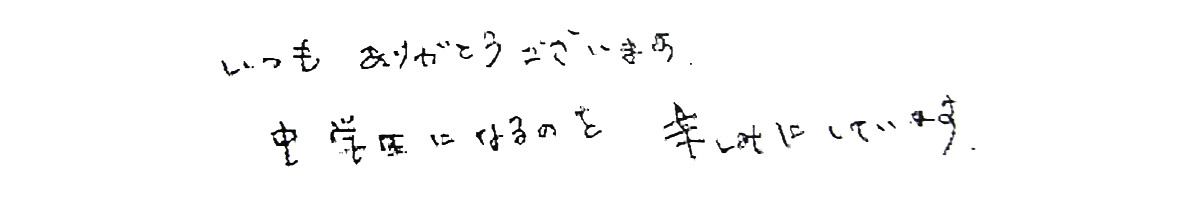 いつも ありがとうございます.
中学生になるのを 楽しみにしています.